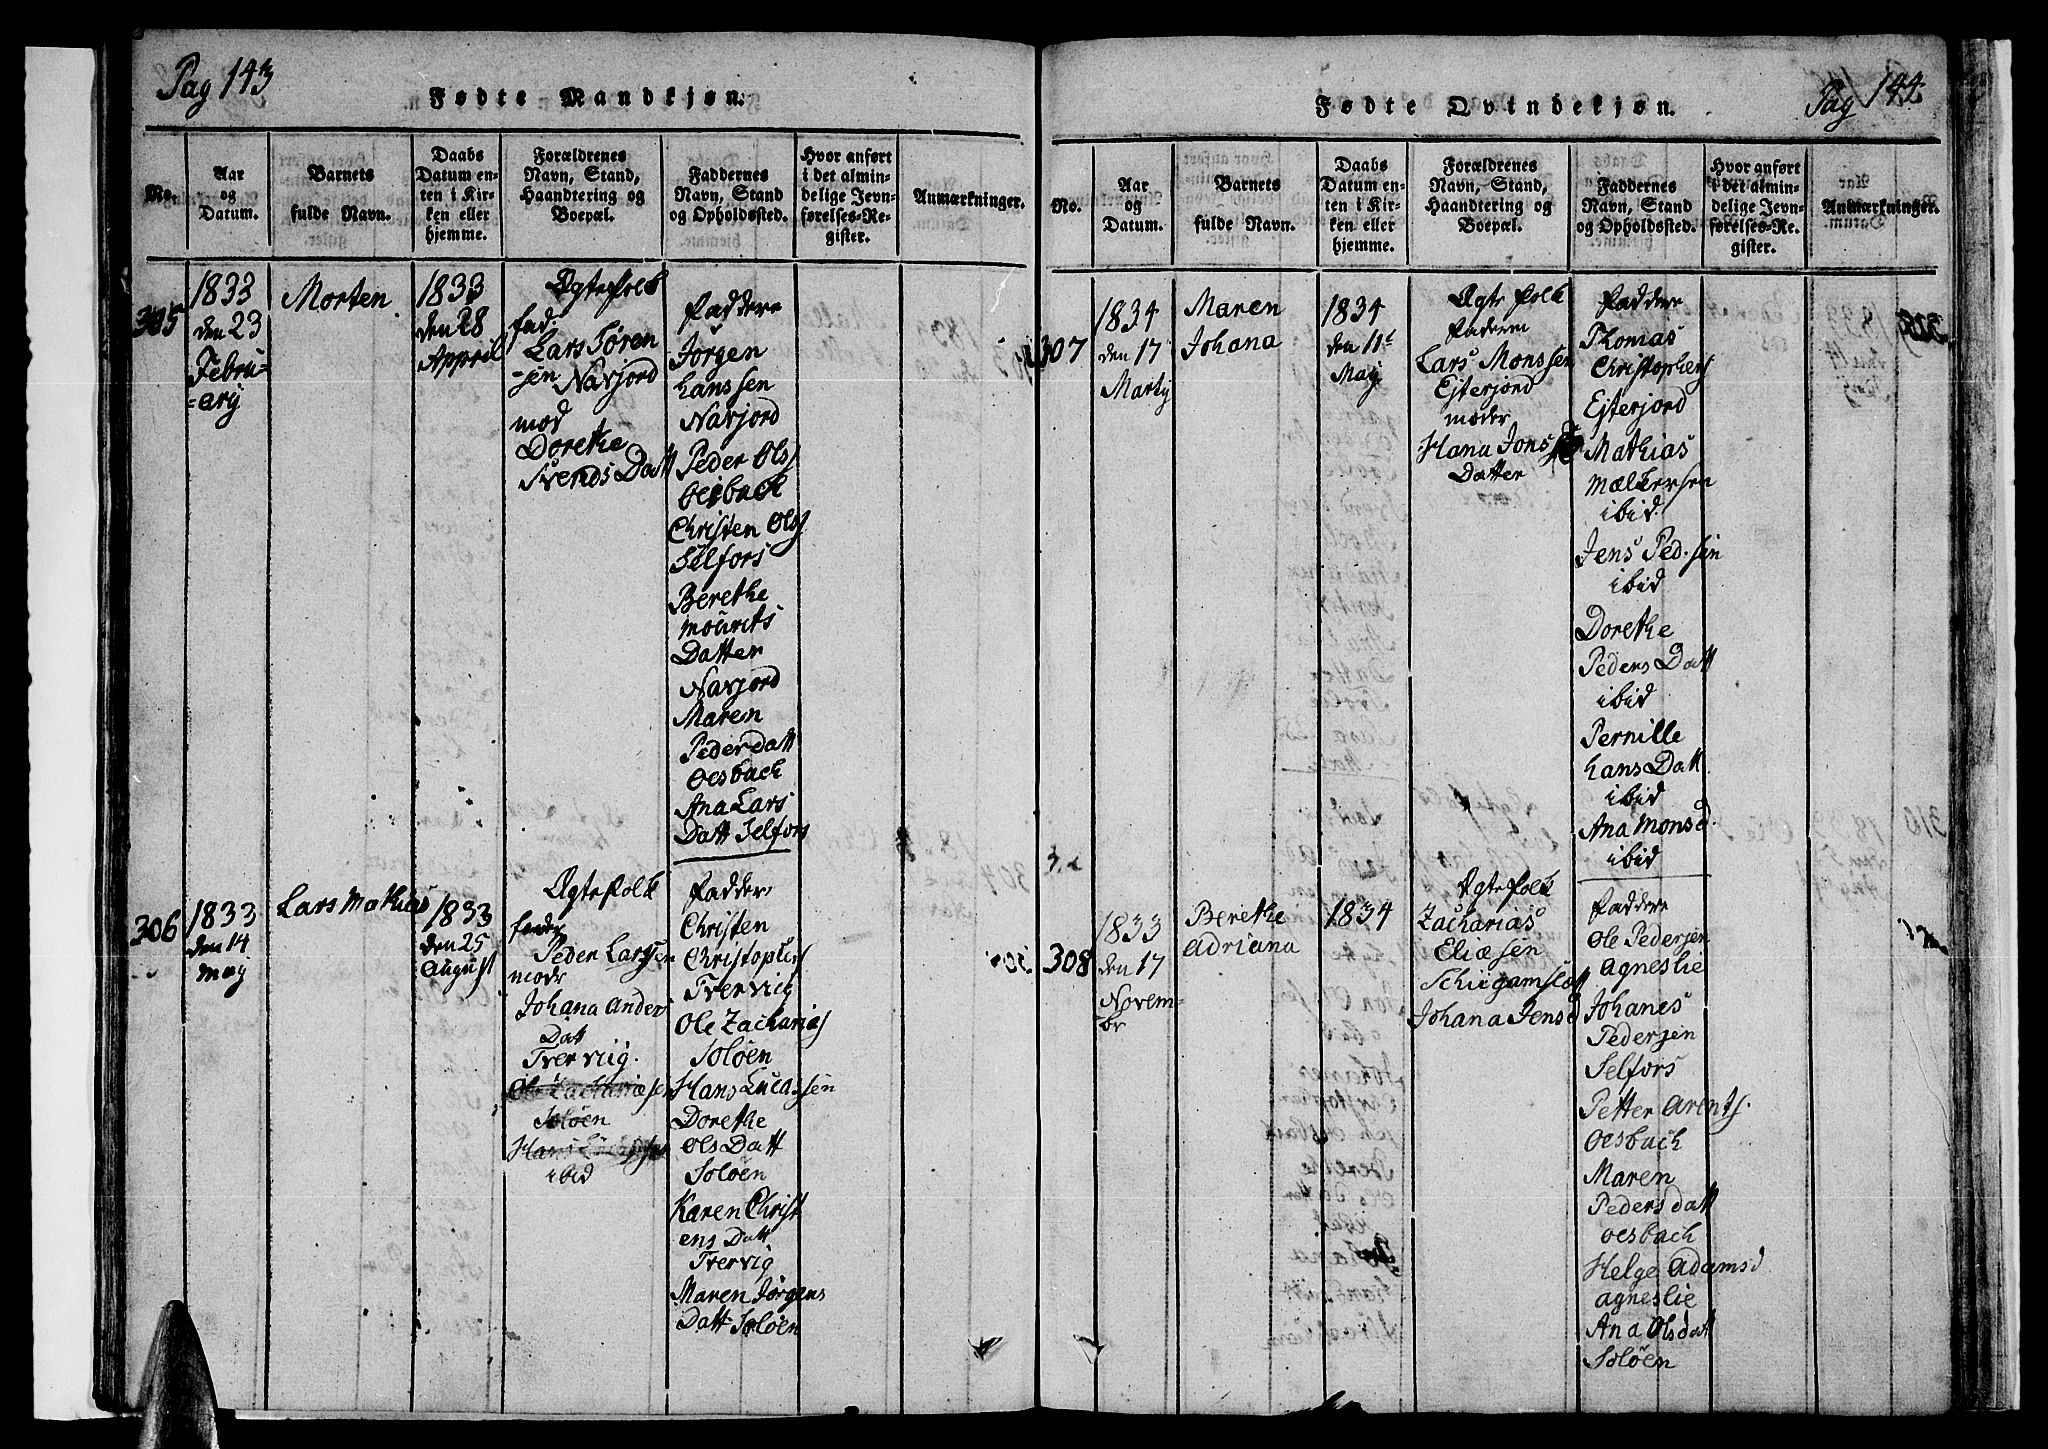 Pag 143
Fødte Mandkjøn.
No.
Aar
og
Datum.
Barnets
fulde Navn.
Daabs
Datum en-
ten i Kir-
ken eller
hjemme.
Forældrenes
Navn, Stand,
Haandtering og
Boepæl.
Faddernes
Navn, Stand
og Opholdssted.
Hvor anført
i det almin-
delige Jevn-
førelses-Re-
gister.
Anmærkninger.
305
1833
den 23
Febru-
=ary
Morten
1833
den 28
Appril
Ægtefolk
fad
Lars Sören
=sen Navjord
mod
Dorethe
Svends Datt
Faddere
Jörgen
hanssen
Navjord
Peder Ols
Oesback
Christen Ols
Selfors
Berethe
mourits
Datter
Navjord
Maren
Pederdatt
Oesbach
Ana Lars
Datt Selfors
306
1833
den 14
may
Lars Mathias
1833
den 25
august
Ægtefolk
fader
Peder Larssen
modr
Johana Anders
Dat
Tvervig.
Ole Zachariæsen
Soløen
Hans
ibid
Fadder
Christen
Christophers
Tvervig
Ole Zacharias
Soløen
Hans Lucassen
Dorethe
Ols Datt
Soløen
Karen Christ
ens Datt
Tvervig
Maren Jörgens
Datt Soløen
Pag 144
Fødte Qvindekjøn.
No.
Aar
og
Datum.
Barnets
fulde Navn.
Daabs
Datum en-
ten i Kir-
ken eller
hjemme.
Forældrenes
Navn, Stand,
Haandtering og
Boepæl.
Faddernes
Navn, Stand
og Opholdssted.
Hvor anført
i det almin-
delige Jevn-
førelses-Re-
gister.
Anmærkninger.
307
1834
den 17
Marty
Maren
Johana
1834
den 11te
May
Ægte folk
faderen
Lars Monssen
Ejterjord
moder
Hana Jons
Datter
Faddere
Thomas
Christophers
Ejterjord
Mathias
Mælkersen
ibid.
Jens Ped.sen
ibid
Dorethe
Peders Datt
ibid
Pernille
hans Datt
ibid
Ana Mons d.
ibid
308
1833
den 17
Novem=
br
Berethe
Adriana
1834
Ægtefolk
Zacharias
Eliæsen
Johana Jens d
Faddere
Ole Pedersen
Agneslie
Johanes
Pedersen
Selfors
Petter Arents.
Oesbach
Maren
Peders datt
oesbach
Helge Adams d
agneslie
Ana Olsdatt
Soløen